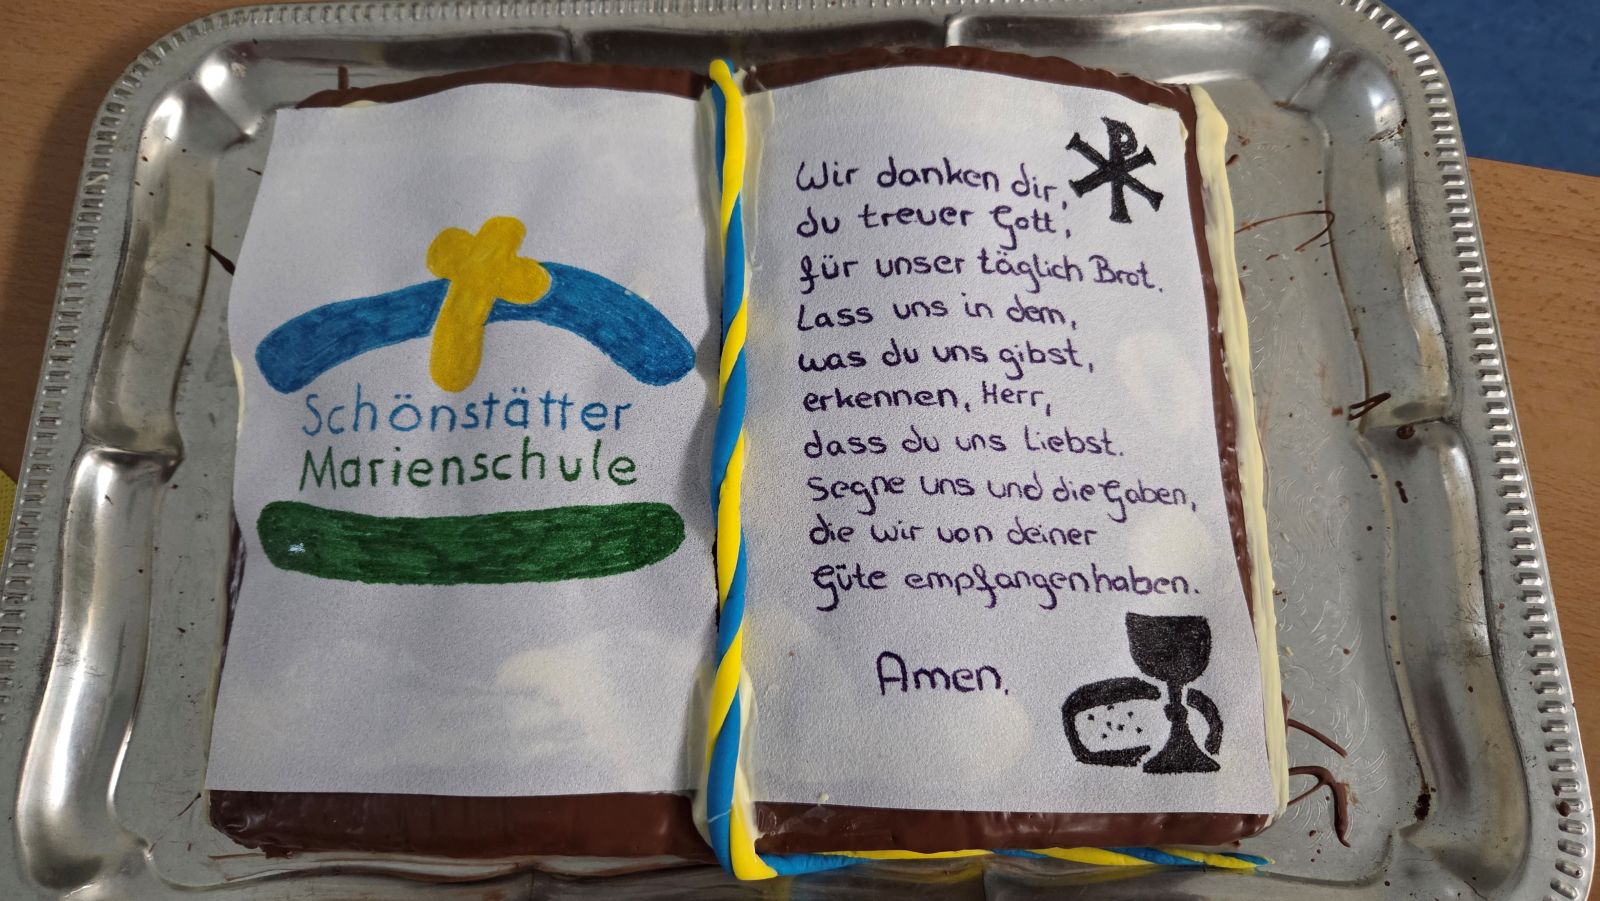 Schönstätter
Marienschule
Wir danken dir,
du treuer Gott,
für unser täglich Brot.
Lass uns in dem,
was du uns gibst,
erkennen, Herr,
dass du uns liebst.
Segne uns und die Gaben,
die wir von deiner
Güte empfangen haben.
Amen.